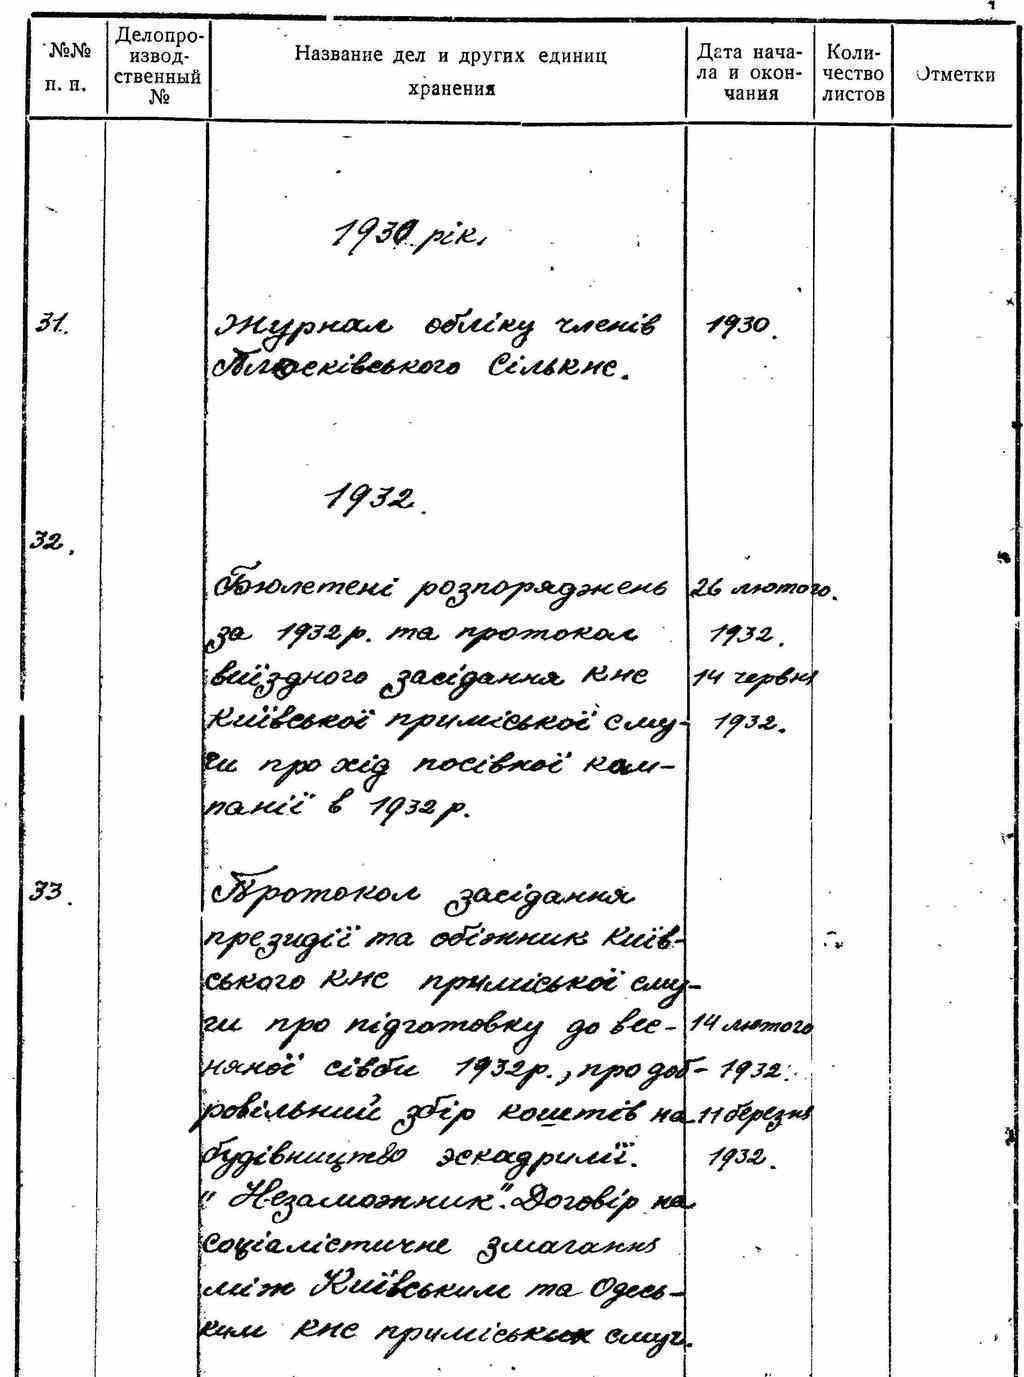 №№ п. п.
Делопроизводственный №
Название дел и других единиц хранения
Дата начала и окончания
Количество листов
Отметки
1930 рік.
31. Журнал обліку членів 1930.
Плюсківського Сількнс.
1932.
32.
Бюлетені розпоряджень 26 лютого.
за 1932 р. та протокол 1932.
виїздного засідання кнс 14 червня
Київської приміської сму- 1932.
ги про хід посівної кам-
панії в 1932 р.
33. Протокол засідання
президії та обіжник Київ-
ського кнс приміської сму-
ги про підготовку до вес- 14 лютого
няної сівби 1932р., про доб- 1932.
ровільний збір коштів на 11 березня
будівництво эскадрилії. 1932.
"Незаможник". Договір на
соціалістичне змагання
між Київським та Одесь-
ким кнс приміських смуг.